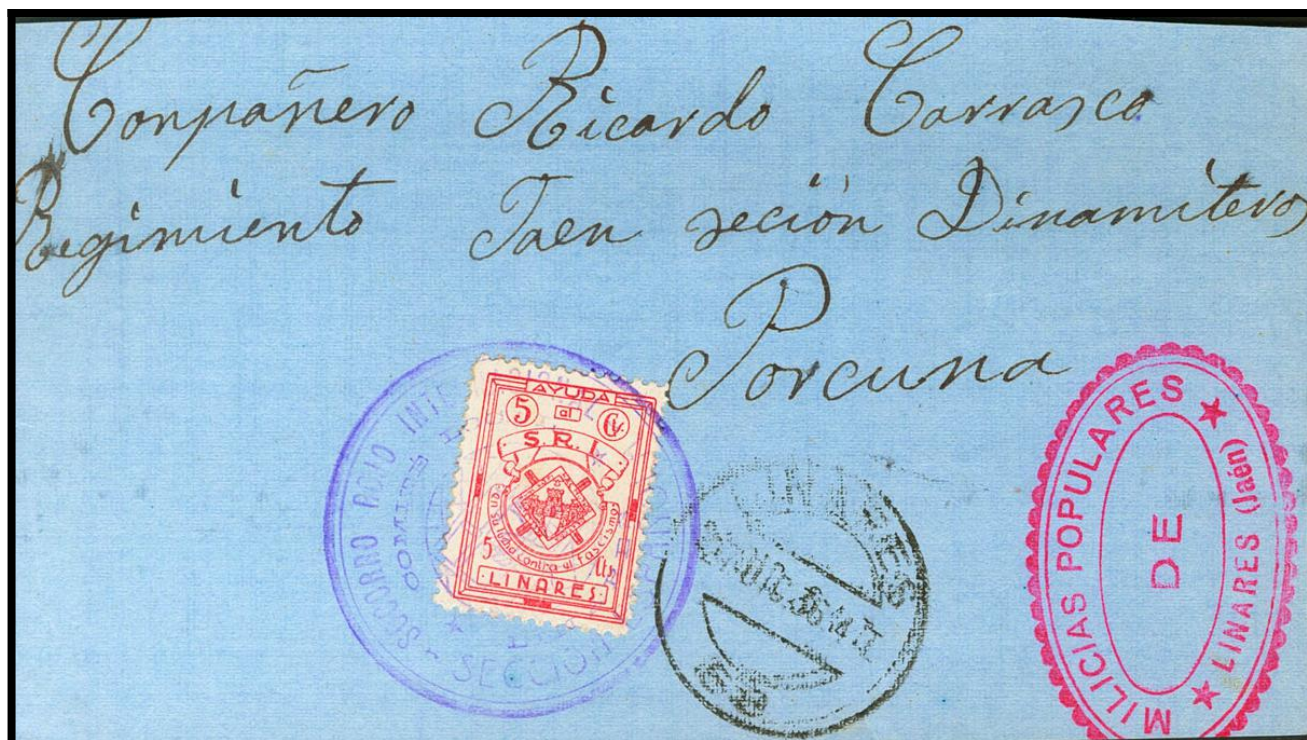 Conpañero Ricardo Carrasco
Regimiento Jaen seción Dinamiteros
Porcuna
AYUDA
5 al Cs
S. R. I.
en su lucha contra el fascismo
5 cts
LINARES
SOCORRO ROJO
COMITÉ
SECCION
LINARES
DIC. 36
MILICIAS POPULARES
DE
LINARES (Jaén)